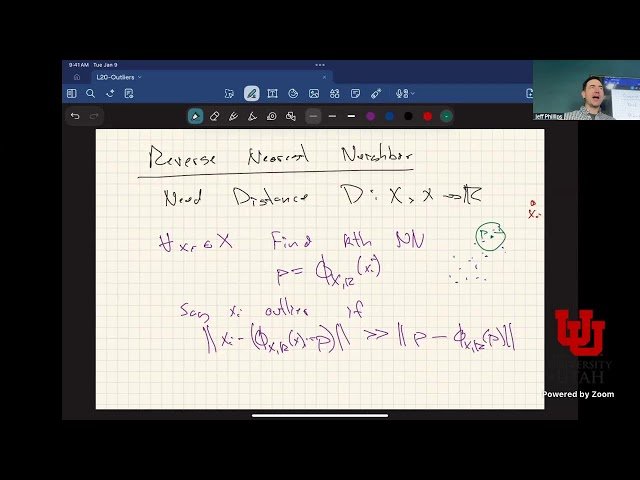 9:41 AM Tue Jan 9
L20-Outliers
Jeff Phillips
Reverse Nearest Neighbor
Need Distance D: X × X → ℝ
∀ xᵢ ∈ X Find kth NN
p = ϕ_X,k(xᵢ)
Say xᵢ outlier if
‖xᵢ - (ϕ_X,k(x) = p)‖ >> ‖p - ϕ_X,k(p)‖
p
xᵢ
U
UNIVERSITY
OF UTAH
Powered by Zoom